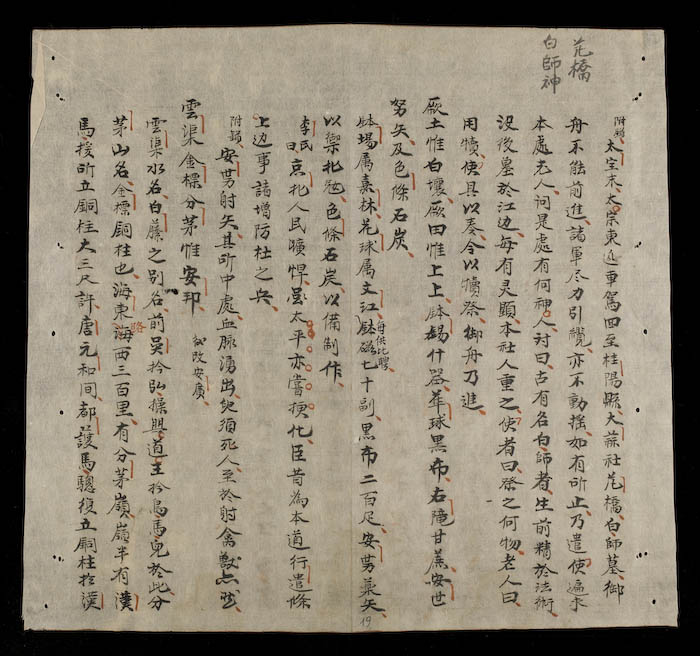 花橋
白師神
附錄太宝末太宗東巡車駕回至桂陽縣大蒜社花橋白師墓御
舟不能前進諸軍尽力引纜亦不動摇如有所止乃遣使遍求
本處老人问是處有何神人对曰古有名白師者生前精於法術
没後墓於江边每有灵顯本社人重之使者曰祭之何物老人曰
用犢使具以奏令以犢祭御舟乃進
厥土惟白壤厥田惟上上鉢錫什器華球黑布右隴甘蔗安世
努矢及色條石炭
鉢場属嘉林花球属文江鉢磁七十副每供北聘黑布二百疋安勇藥矢
以禦北寇色條石炭以備制作
李氏曰京北人民獷悍虽太平亦嘗梗化臣昔為本道行遣條
上边事請增防杜之兵
附錄安勇射矢其所中處血脉湧出絶須死人至於射禽獸亦然
雲渠金標分茅惟安邦
改安廣
雲渠水名白藤之别名前吴拎弘操興道王拎烏馬兒於此分
茅山名金標銅柱也海東路海西三百里有分茅嶺嶺半有漢
馬援所立銅柱大三尺許唐元和间都護馬驄復立銅柱於漢
19